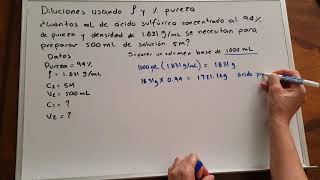 Diluciones usando ρ y % pureza
¿Cuántos mL de ácido sulfúrico concentrado al 94%
de pureza y densidad de 1.831 g/mL se necesitan para
preparar 500 mL de solución 5M?
Datos
Pureza = 94%
ρ = 1.831 g/mL
C₂ = 5M
V₂ = 500 mL
C₁ = ?
V₁ = ?
Suponer un volumen base de 1000 mL
1000 mL (1.831 g/mL) = 1831 g
1831g x 0.94 = 1721.14g ácido pu